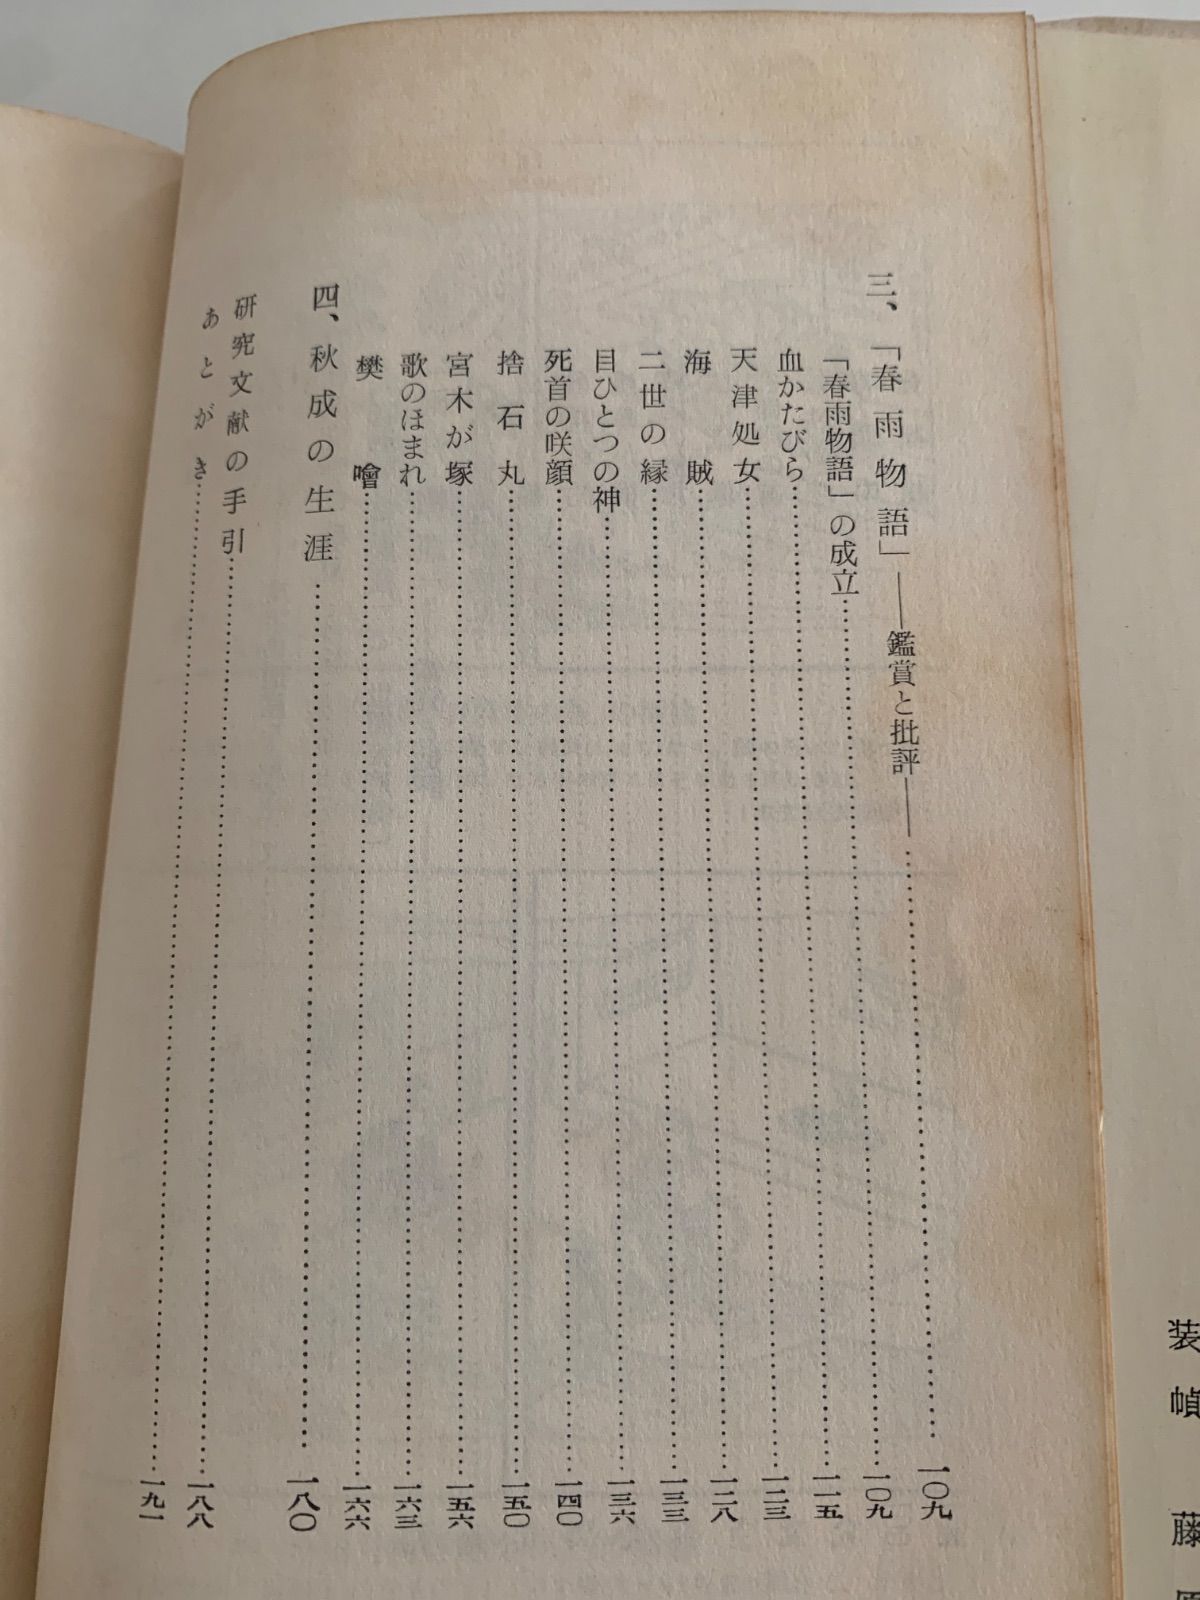 三、「春雨物語」――鑑賞と批評――……一〇九
「春雨物語」の成立……一〇九
血かたびら……一一五
天津処女……一二三
海賊……一二八
二世の縁……一三三
目ひとつの神……一三六
死首の咲顔……一四〇
捨石丸……一五〇
宮木が塚……一五六
歌のほまれ……一六三
樊噲……一六六
四、秋成の生涯……一八〇
研究文献の手引……一八八
あとがき……一九一
装幀 藤